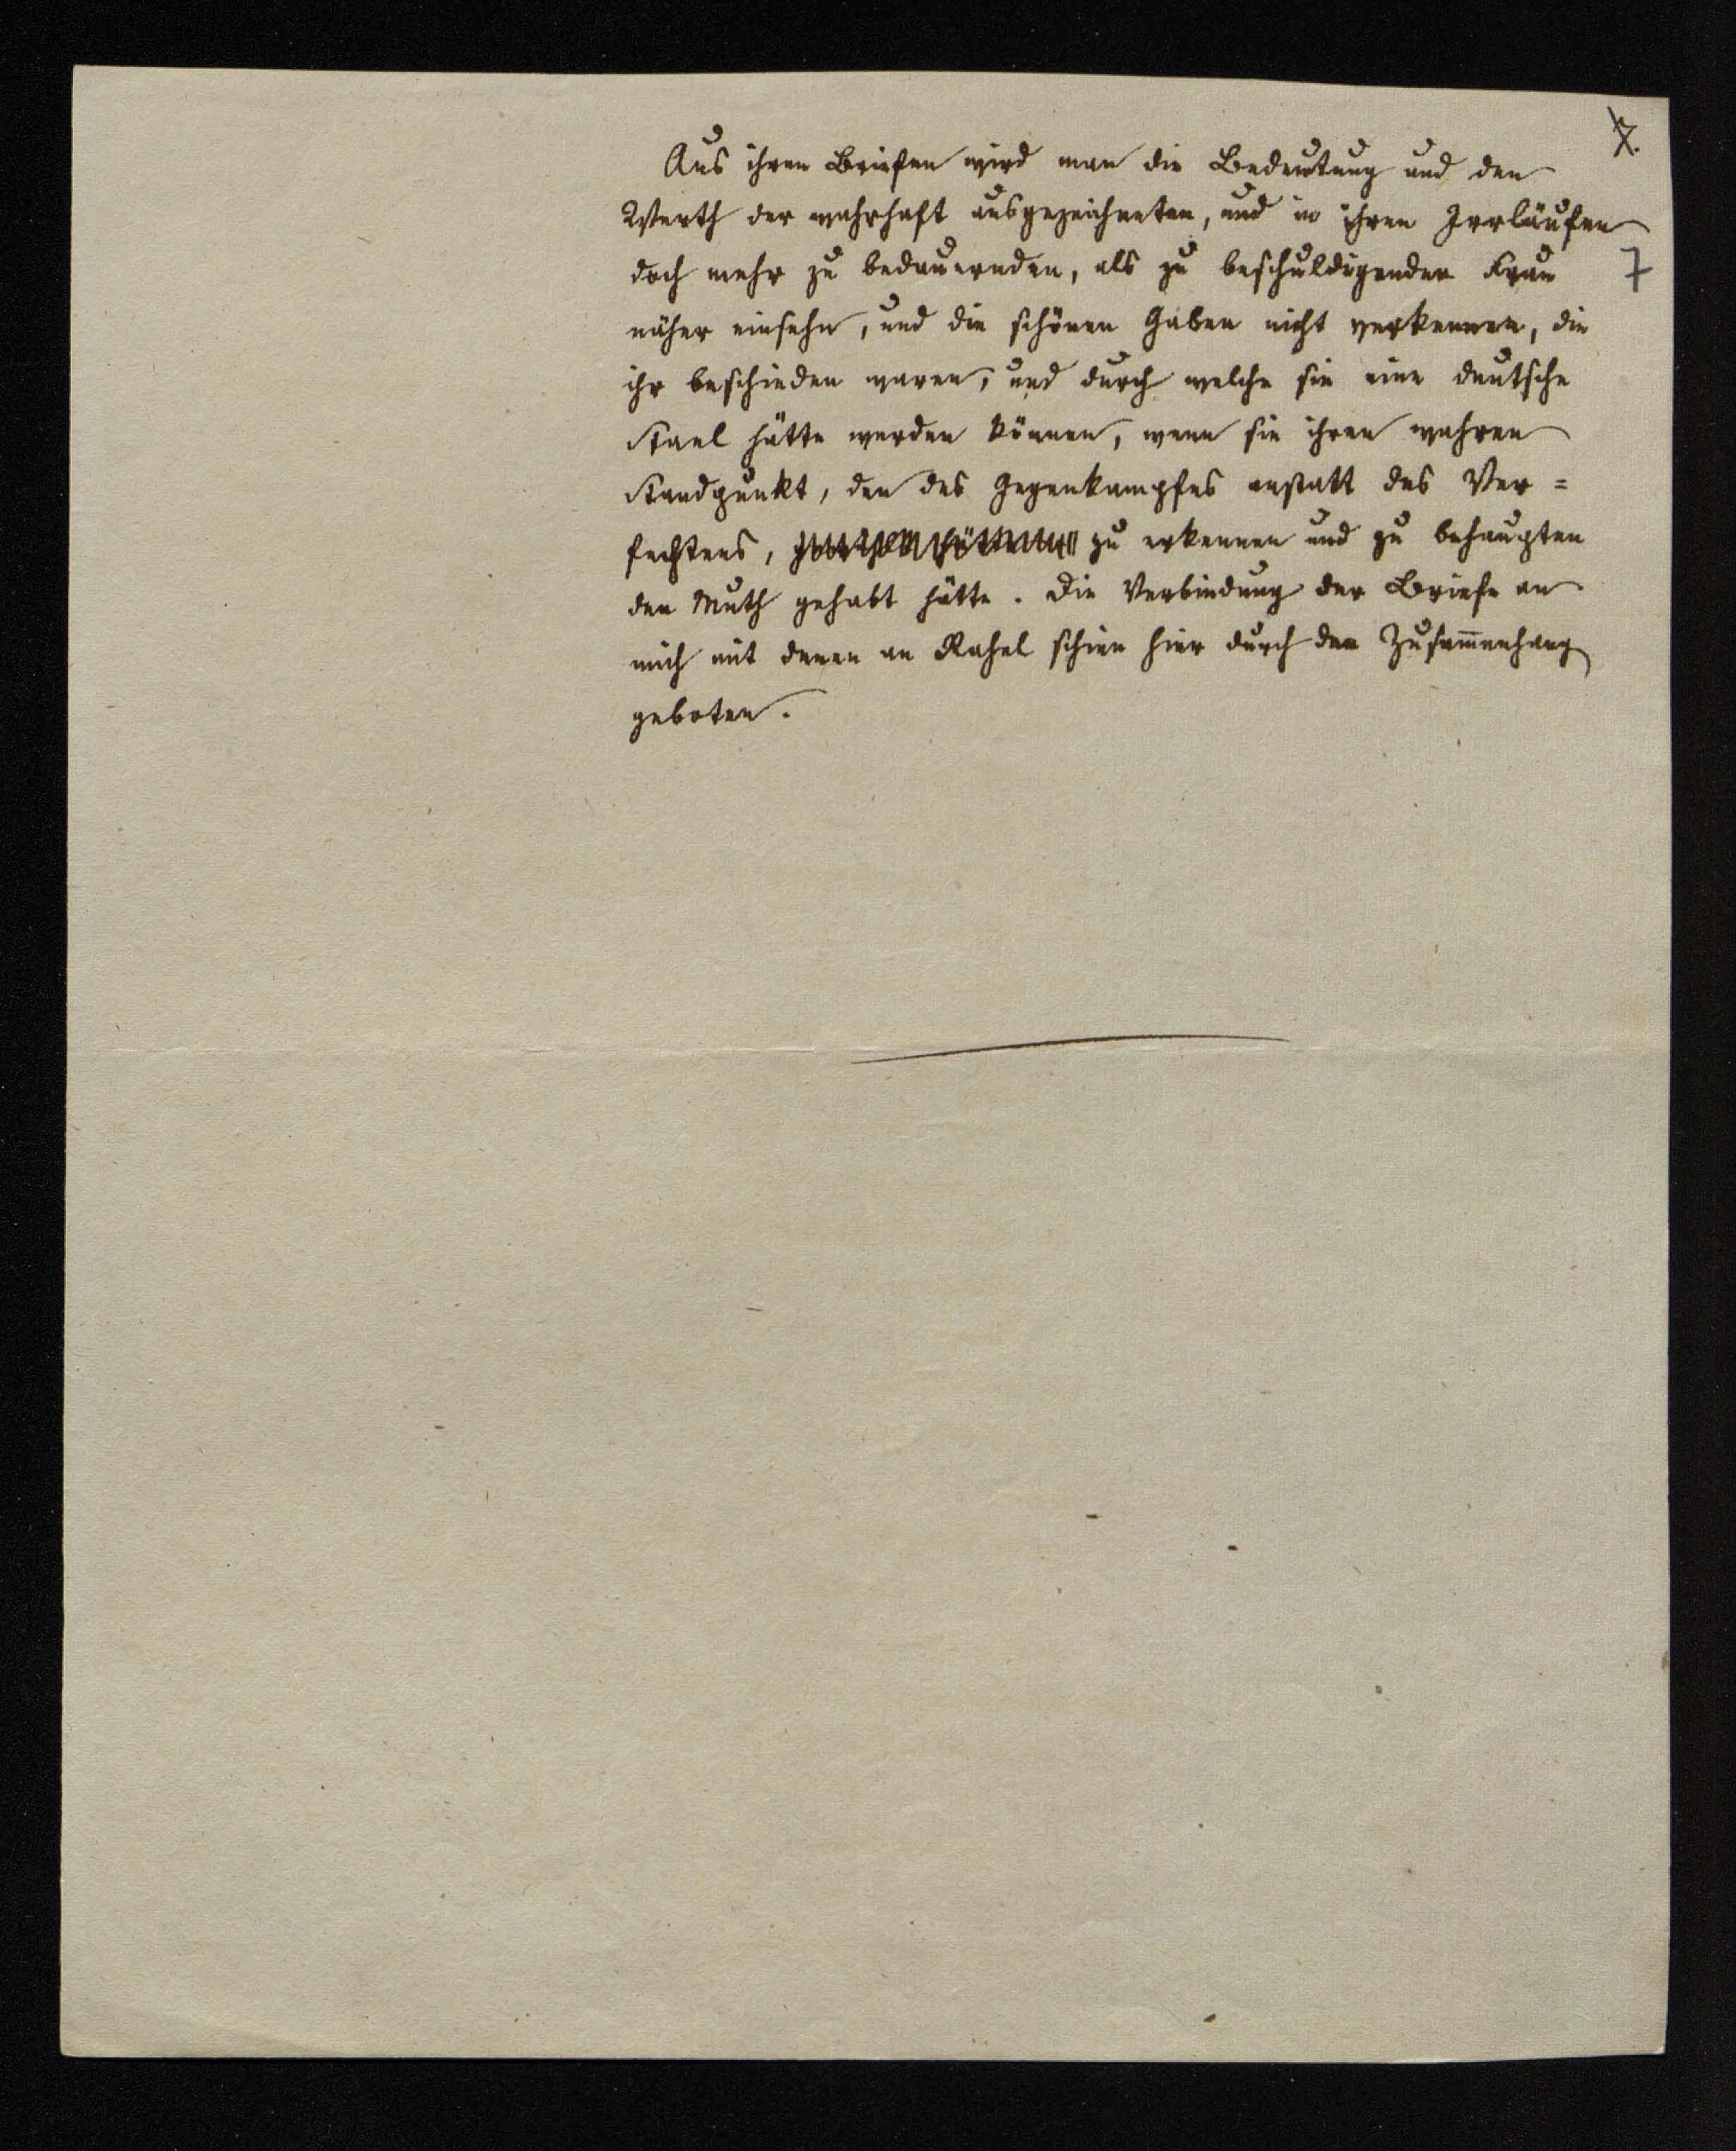 7.
Aus ihren Briefen wird man die Bedeutung und den
Werth der wahrhaft ausgezeichneten, und in ihren Irrläufen
doch mehr zu bedauernden, als zu beschuldigenden Frau
7
näher einsehn, und die schönen Gaben nicht verkennen, die
ihr beschieden waren, und durch welche sie eine deutsche
Stael hätte werden können, wenn sie ihren wahren
Standpunkt, den des Gegenkampfes anstatt des Ver=
fechtens, zu erkennen und zu behaupten
den Muth gehabt hätte. Die Verbindung der Briefe an
mich mit denen an Rahel schien hier durch den Zusam̅enhang
geboten.